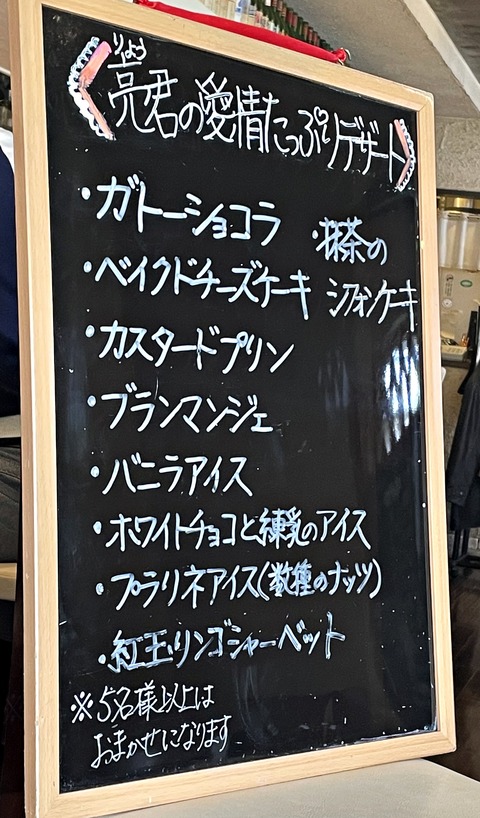 りょう
亮君の愛情たっぷりデザート
・ガトーショコラ
・ベイクドチーズケーキ
・抹茶の
シフォンケーキ
・カスタードプリン
・ブランマンジェ
・バニラアイス
・ホワイトチョコと練乳のアイス
・プラリネアイス(数種のナッツ)
・紅玉リンゴシャーベット
※5名様以上は
おまかせになります